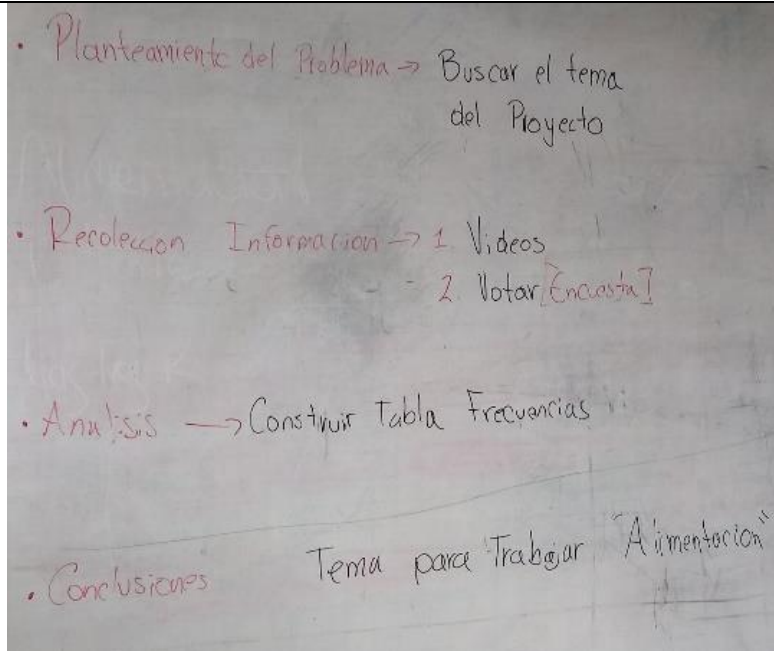 · Planteamiento del Problema → Buscar el tema
del Proyecto
· Recoleccion Informacion → 1. Videos
2. Votar [Encuesta]
· Analisis → Construir Tabla Frecuencias
· Conclusiones Tema para Trabajar "Alimentacion"